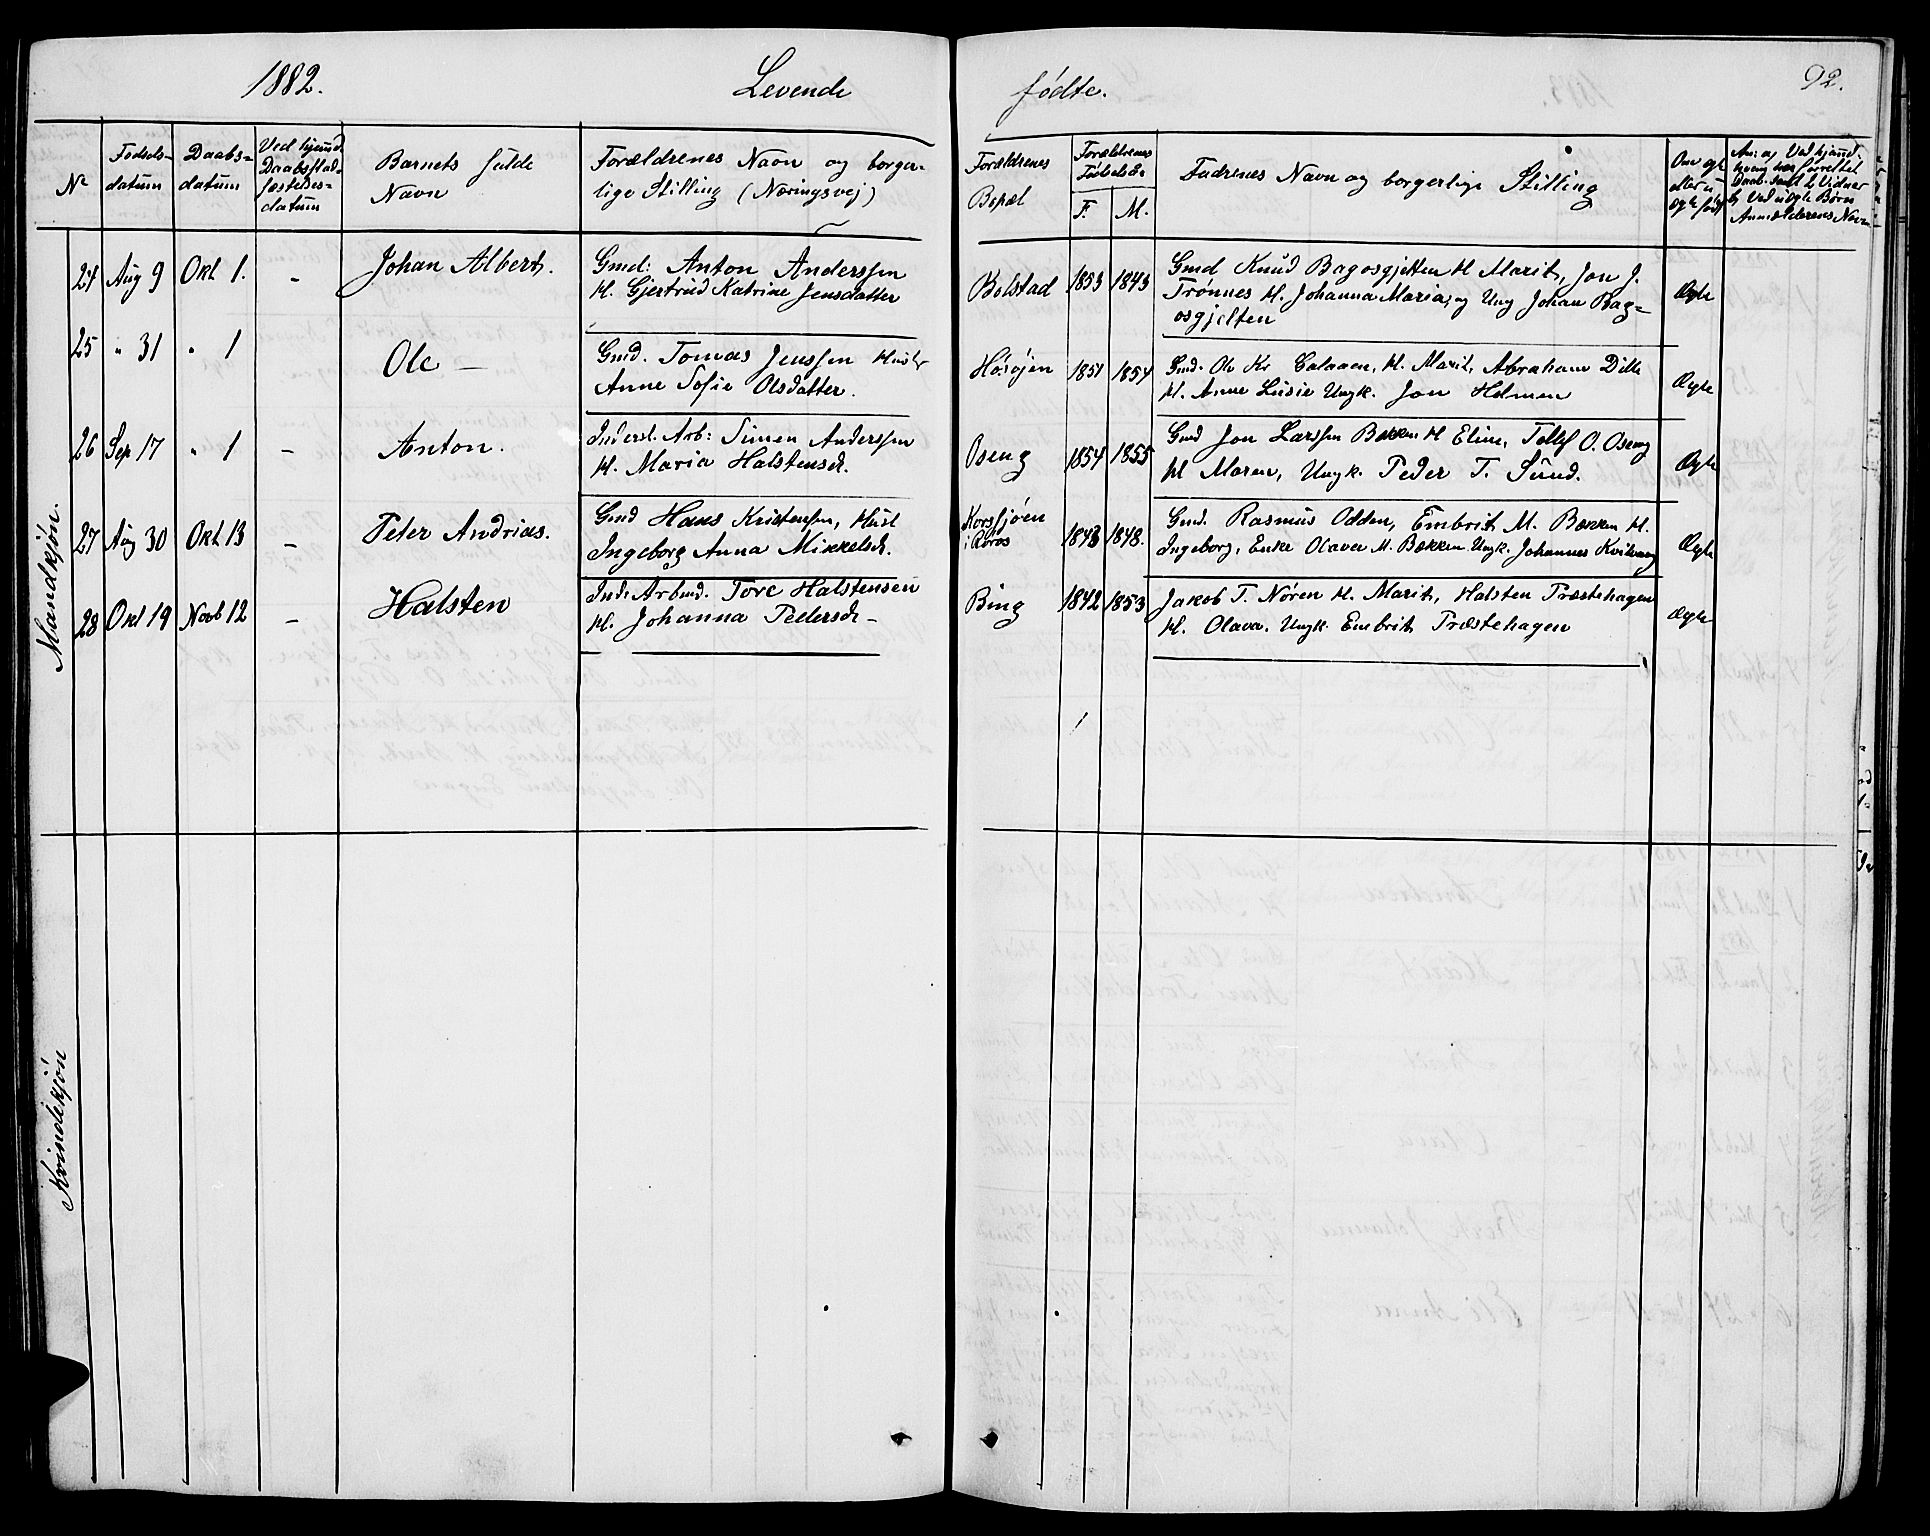 1882. Levende fødte. 92.
No
Fødsels-
datum
Daabs-
datum
Ved hjemd.
Daabs stad-
fæstelses-
datum
Barnets fulde
Navn
Forældrenes Navn og borger-
lige Stilling (Næringsvej)
Forældrenes
Bopæl
Forældrenes
Fødselsår
F. M.
Fadrenes Navn og borgerlige Stilling
Om ægte
eller u-
ægte født
Mandkjøn.
24 Aug 9 Okt 1. - Johan Albert.
Gmd: Anton Anderssen
H. Gjertrud Katrine Jensdatter
Bolstad 1853 1843
Gmd Knud Bagosgjelten H Marit, Jon J.
Trønnes H. Johanna Maria, og Ung Johan Bag-
osgjelten
Ægte
25 " 31 " 1 Ole -
Gmd. Tomas Jenssen Hustr
Anne Sofie Olsdatter.
Høsøjen 1851 1854
Gmd. Ole Kr H. Marit, Abraham
H. Anne Lusie Ungk. Jon Holmen
Ægte
26 Sep 17 " 1 - Anton.
Inderst. Arb: Simen Anderssen
H. Maria Halstensd.
Oseng 1854 1855
Gmd Jon Larssen Bakken H Eline, Tollef O. Oseng
H Maren, Ungk. Peder T. Sund.
Ægte
27 Aug 30 Okt 13 - Peter Andrias.
Gmd Hans Kristensen, Hust
Ingeborg Anna Mikkelsd.
Korssjøen
i Røros
1843 1848.
Gmd. Rasmus Odden, Embrit M. Bækken H.
Ingeborg, Enke Olava M. Bækken Ungk. Johannes Kvilvang
Ægte
28 Okt 19 Novb 12 - Halsten
Ind. Arbmd. Tore Halstensen
H. Johanna Pedersd -
Bing 1842 1853
Jakob T. Nøren H. Marit, Halsten Præstehagen
H. Olava. Ungk. Embrit Præstehagen
Ægte
Kvindekjøn